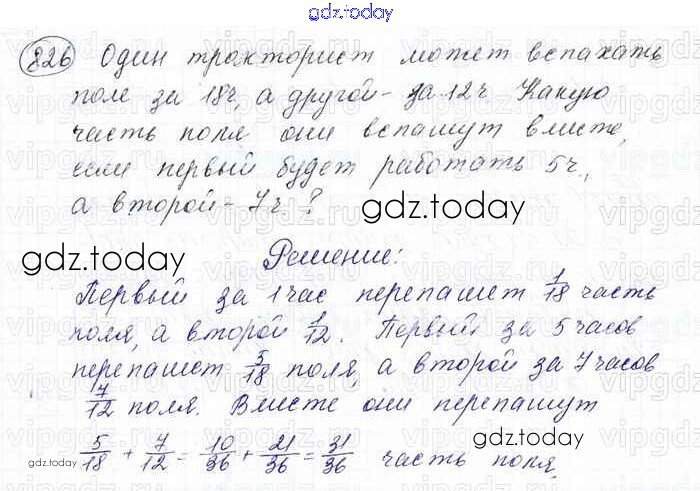 gdz.today
826 Один тракторист может вспахать
поле за 18ч, а другой - за 12ч Какую
часть поля они вспашут вместе,
если первый будет работать 5ч.,
а второй - 7ч?
gdz.today
gdz.today
Решение:
Первый за 1 час перепашет 1/18 часть
поля, а второй 1/12. Первый за 5 часов
перепашет 5/18 поля, а второй за 7 часов
7/12 поля. Вместе они перепашут
gdz.today
5/18 + 7/12 = 10/36 + 21/36 = 31/36 часть поля.
gdz.today